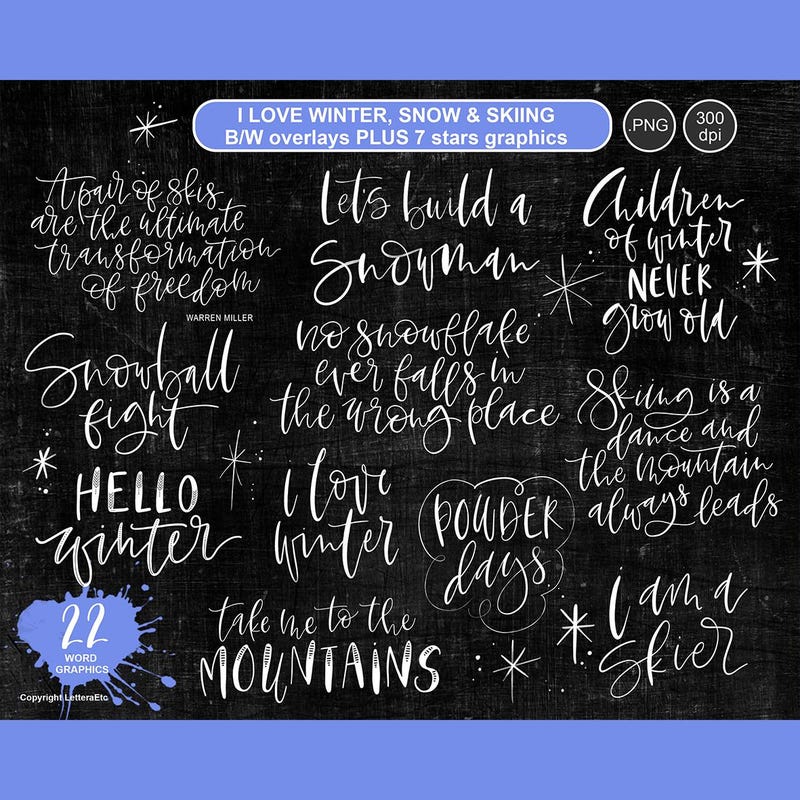 I LOVE WINTER, SNOW & SKIING
B/W overlays PLUS 7 stars graphics
.PNG
300
dpi
A pair of skis
are the ultimate
transformation
of freedom
WARREN MILLER
Let's build a
Snowman
Children
of winter
NEVER
grow old
Snowball
fight
no snowflake
ever falls in
the wrong place
Skiing is a
dance and
the mountain
always leads
HELLO
winter
I love
winter
POWDER
days
take me to the
MOUNTAINS
I am a
skier
22
WORD
GRAPHICS
Copyright LetteraEtc